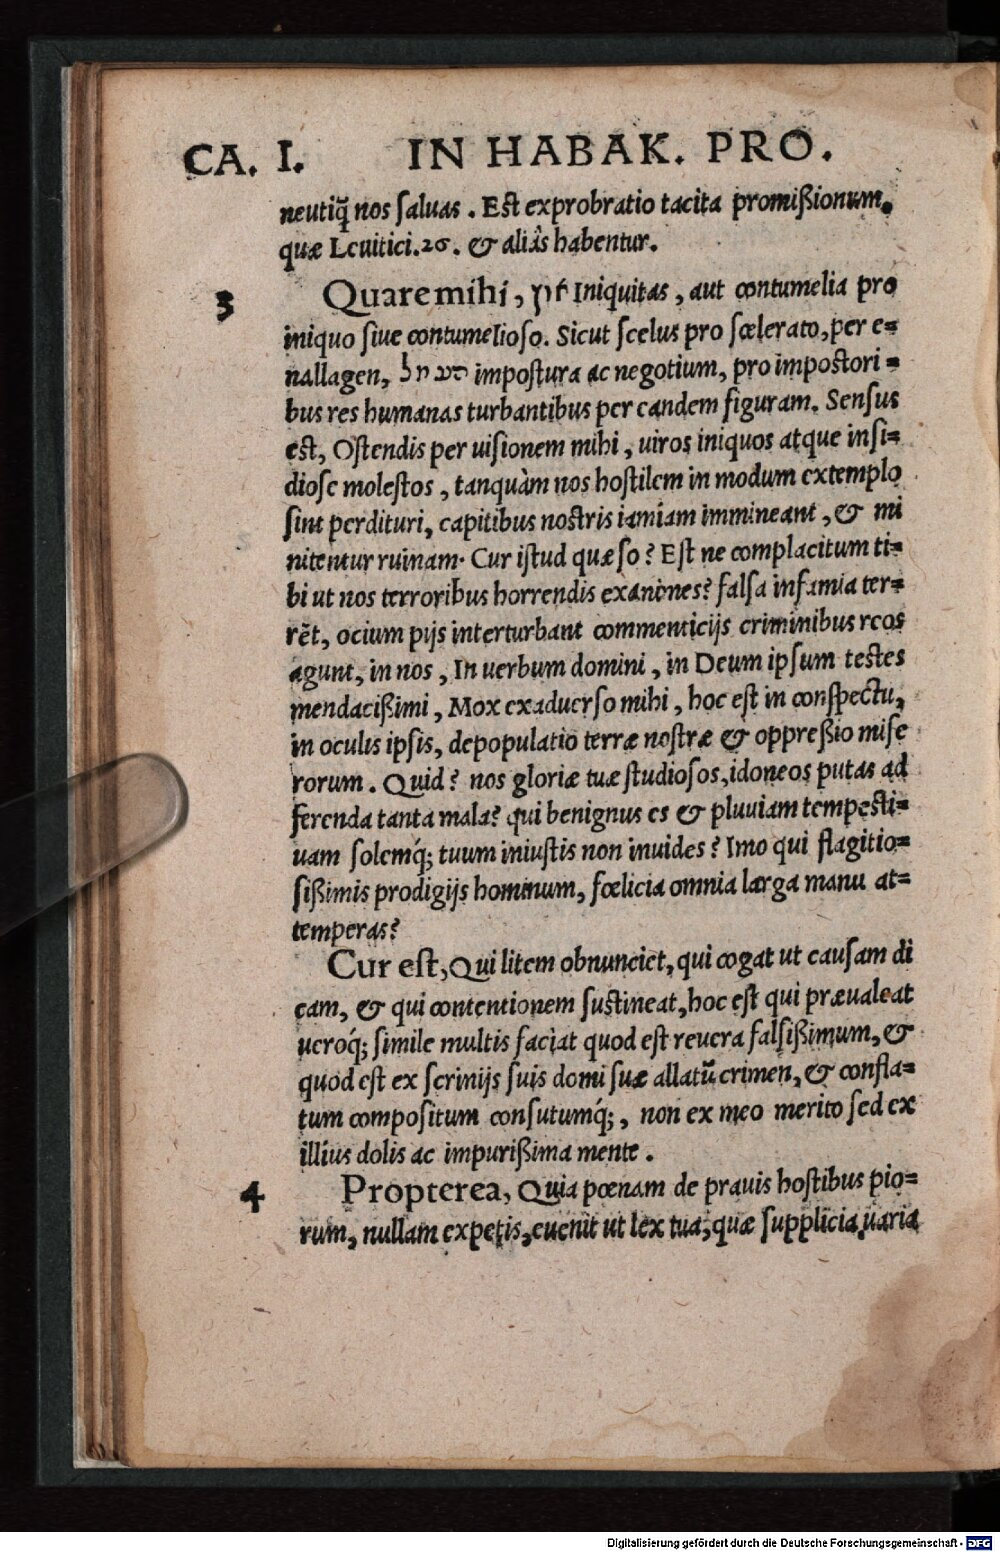 CA. I. IN HABAK. PRO.
neutiq̃ nos ſaluas. Eſt exprobratio tacita promiſsionum,
quæ Leuitici.26. & aliâs habentur.
3 Quare mihi, Iniquitas, aut contumelia pro
iniquo ſiue contumelioſo. Sicut ſcelus pro ſcelerato, per e=
nallagen, impoſtura ac negotium, pro impoſtori=
bus res humanas turbantibus per eandem figuram. Senſus
eſt, Oſtendis per uiſionem mihi, uiros iniquos atque inſi=
dioſe moleſtos, tanquàm nos hoſtilem in modum extemplo
ſint perdituri, capitibus noſtris iamiam immineant, & mi
nitentur ruinam. Cur iſtud quæſo? Eſt ne complacitum ti=
bi ut nos terroribus horrendis exanines? falſa infamia ter=
rēt, ocium pijs interturbant commenticijs criminibus reos
agunt, in nos, In uerbum domini, in Deum ipſum teſtes
mendaciſsimi, Mox ex aduerſo mihi, hoc eſt in conſpectu,
in oculis ipſis, depopulatio terræ noſtræ & oppreſsio miſe
rorum. Quid? nos gloriæ tuæ ſtudioſos, idoneos putas ad
ferenda tanta mala? qui benignus es & pluuiam tempeſti=
uam ſolemq́; tuum iniuſtis non inuides? Imo qui flagitio=
ſiſsimis prodigijs hominum, fœlicia omnia larga manu at=
temperas?
Cur eſt, Qui litem obnunciet, qui cogat ut cauſam di
cam, & qui contentionem ſuſtineat, hoc eſt qui præualeat
ueroq́; ſimile multis faciat quod eſt reuera falſiſsimum, &
quod eſt ex ſcrinijs ſuis domi ſuæ allatū crimen, & confla=
tum compoſitum conſutumq́;, non ex meo merito ſed ex
illius dolis ac impuriſsima mente.
4 Propterea, Quia pœnam de prauis hoſtibus pio=
rum, nullam expetis, euenit ut lex tua, quæ ſupplicia uaria
Digitalisierung gefördert durch die Deutsche Forschungsgemeinschaft - DFG